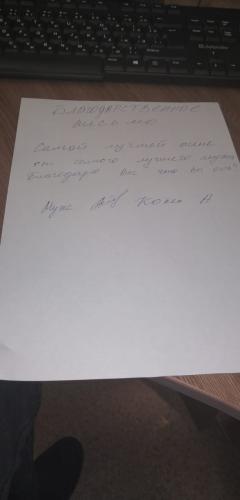 БЛАГОДАРСТВЕННОЕ
ПИСЬМО
Самой лучшей жене
от самого лучшего мужа
Благодарю вас что вы есть!
Муж Конев А